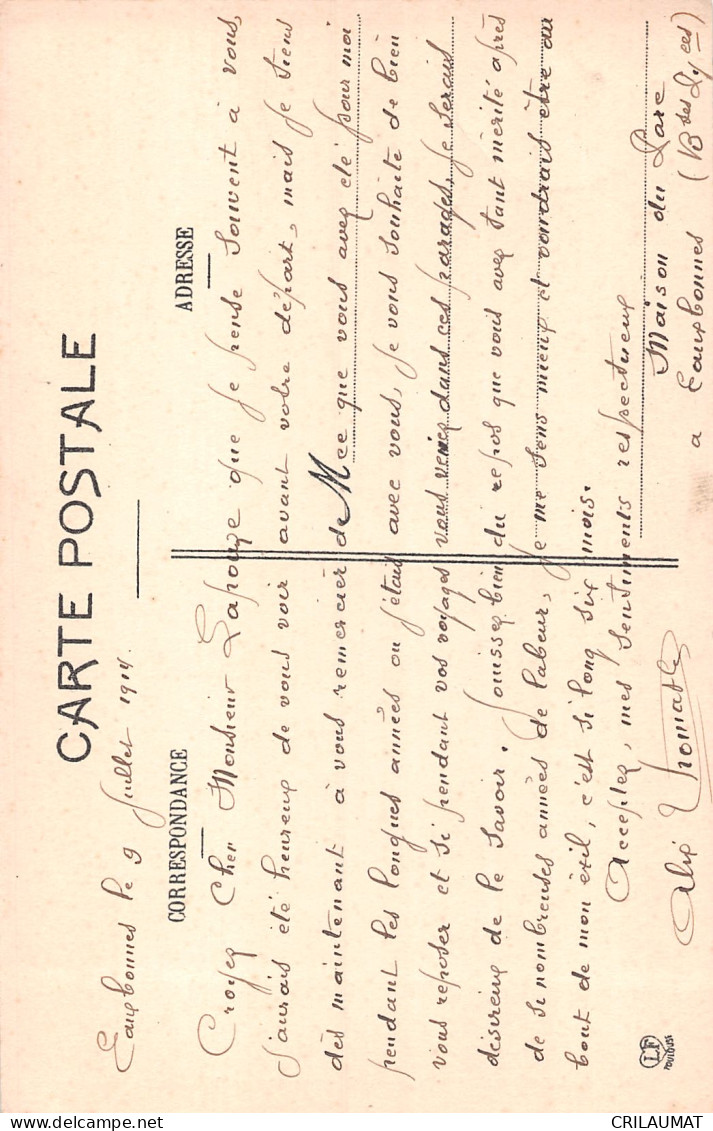 CARTE POSTALE
CORRESPONDANCE
ADRESSE
Eauxbonnes le 9 Juillet 1914.
Croyez Cher Monsieur que je pense souvent à vous,
j'aurais été heureux de vous voir avant votre départ, mais je tiens
dès maintenant à vous remercier de ce que vous avez été pour moi
pendant les longues années ou j'étais avec vous, je vous souhaite de bien
vous reposer et si pendant vos voyages vous veniez dans ces parages, je serais
désireux de le savoir. Jouissez bien du repos que vous avez tant mérité après
de si nombreuses années de labeur, je me sens mieux et voudrais être au
bout de mon éxil, c'est si long six mois.
Acceptez, mes sentiments respectueux
Alix
Maison du Parc
a Eauxbonnes (Bses Pyees)
LF
TOULOUSE
CRILAUMAT